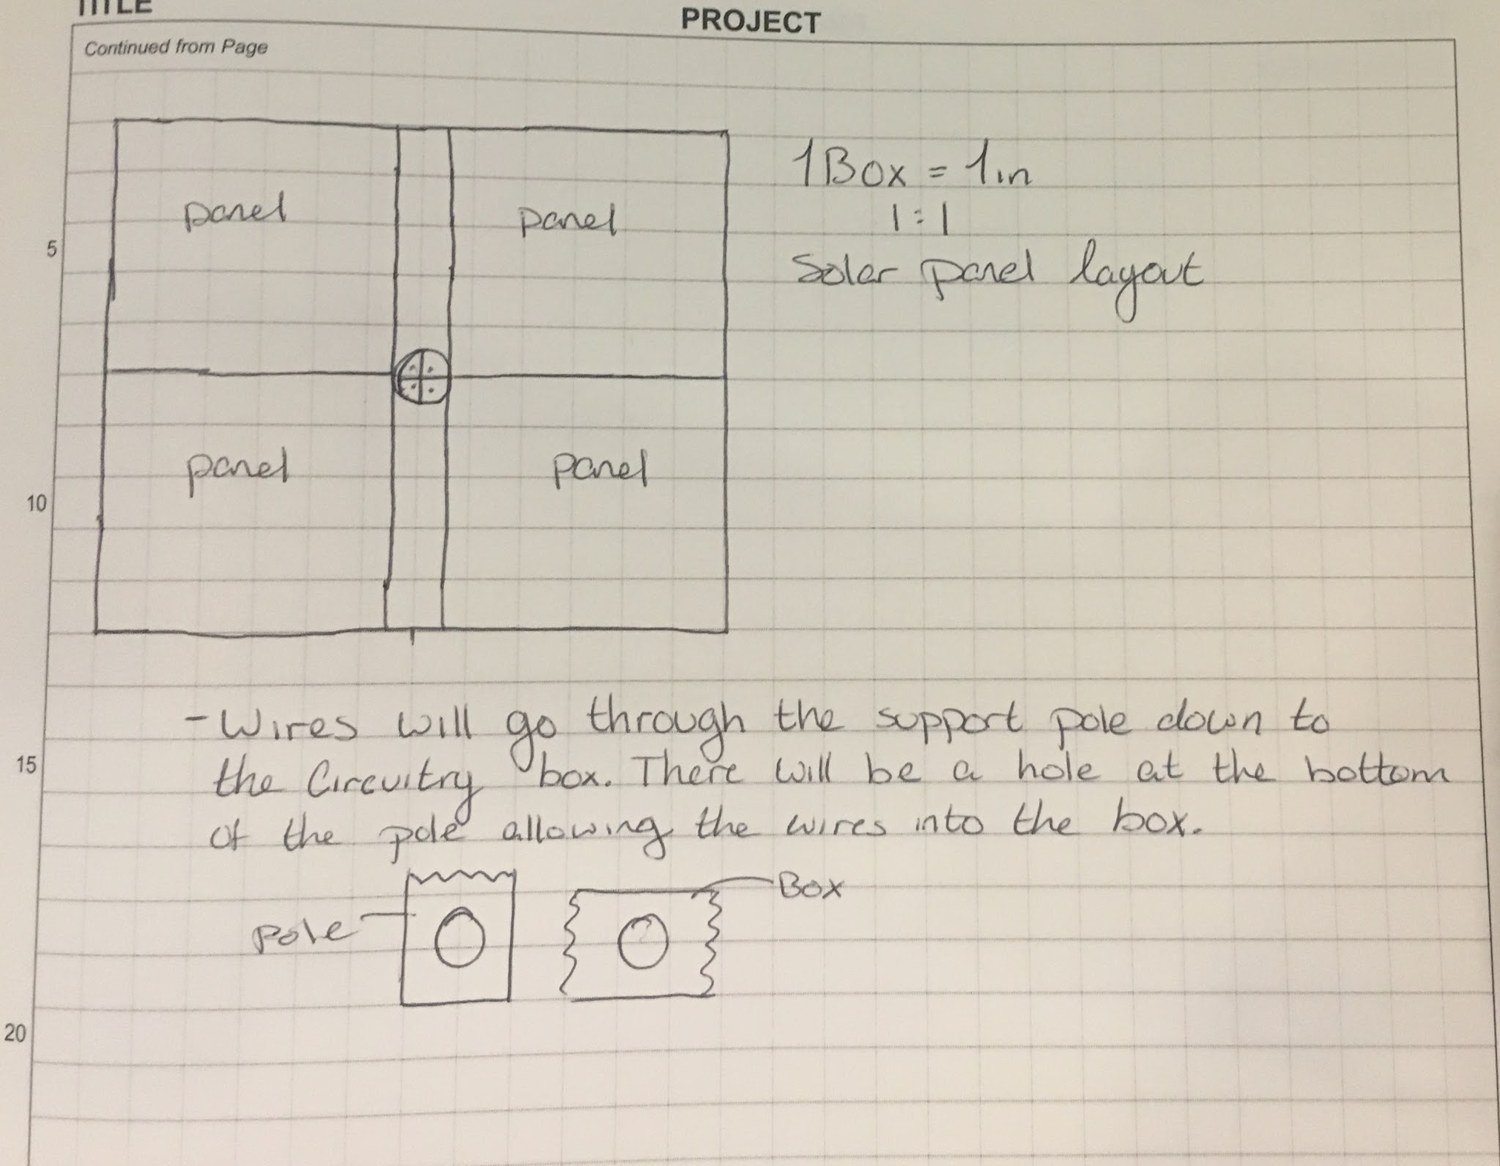 TITLE
PROJECT
Continued from Page
panel
panel
1Box = 1in
1:1
Solar panel layout
5
panel
panel
10
- Wires will go through the support pole down to
15
the Circuitry box. There will be a hole at the bottom
of the pole allowing the wires into the box.
Box
pole
20